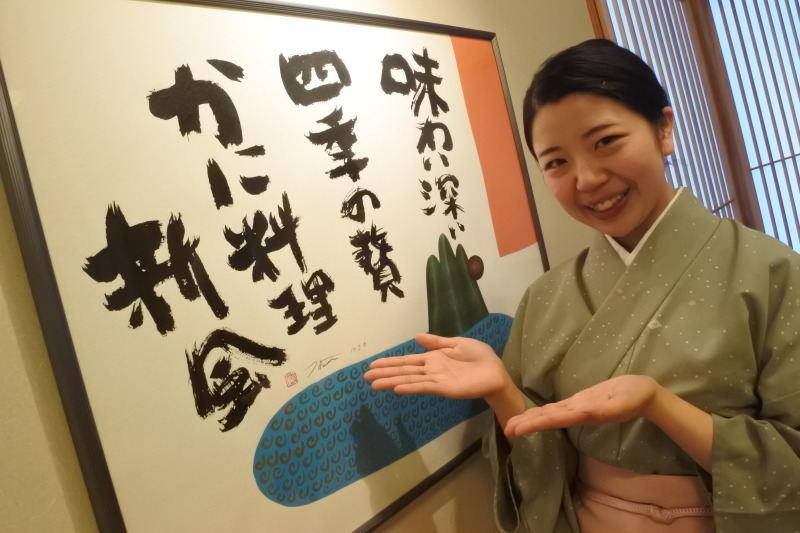 味わい深い
四季の賛
かに料理
新風